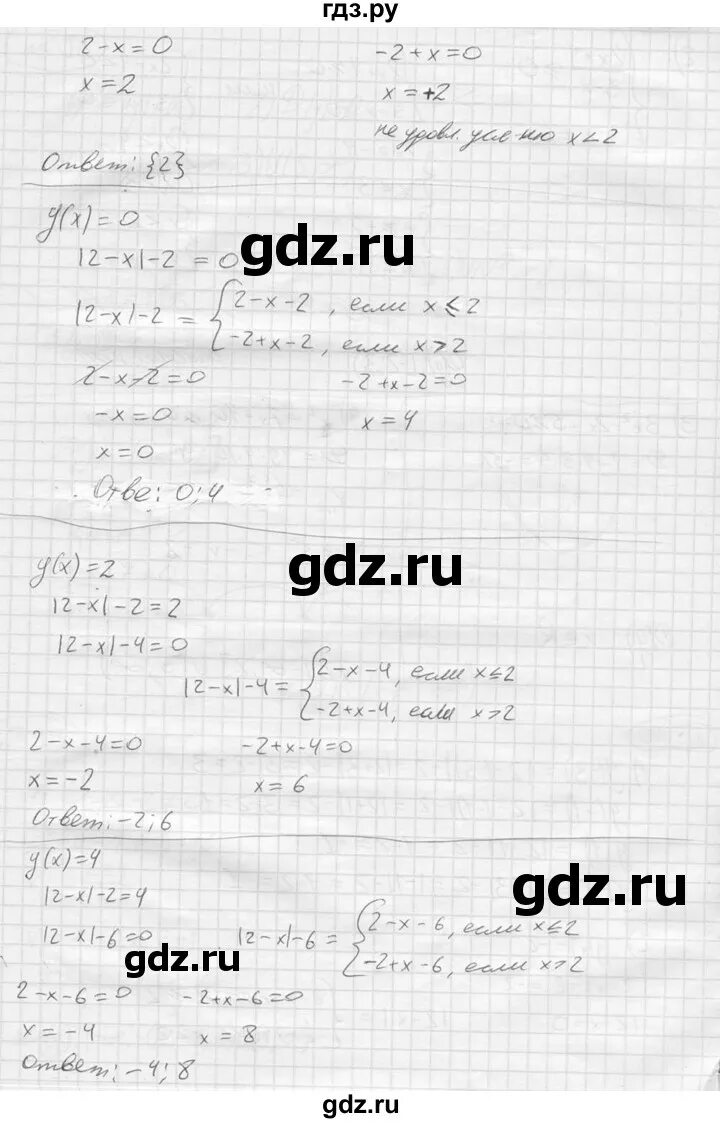 гдз.ру
2-x=0 -2+x=0
x=2 x=+2
не удовл. усл-ию x<2
Ответ: {2}
y(x)=0
|2-x|-2=0
gdz.ru
|2-x|-2 = { 2-x-2, если x⩽2
-2+x-2, если x>2
2-x-2=0 -2+x-2=0
-x=0 x=4
x=0
Отве: 0;4
y(x)=2
gdz.ru
|2-x|-2=2
|2-x|-4=0
|2-x|-4= { 2-x-4, если x≤2
-2+x-4, если x>2
2-x-4=0 -2+x-4=0
x=-2 x=6
Ответ: -2;6
y(x)=4
gdz.ru
|2-x|-2=4
|2-x|-6=0 |2-x|-6= { 2-x-6, если x≤2
-2+x-6, если x>2
gdz.ru
2-x-6=0 -2+x-6=0
x=-4 x=8
Ответ: -4;8
gdz.ru